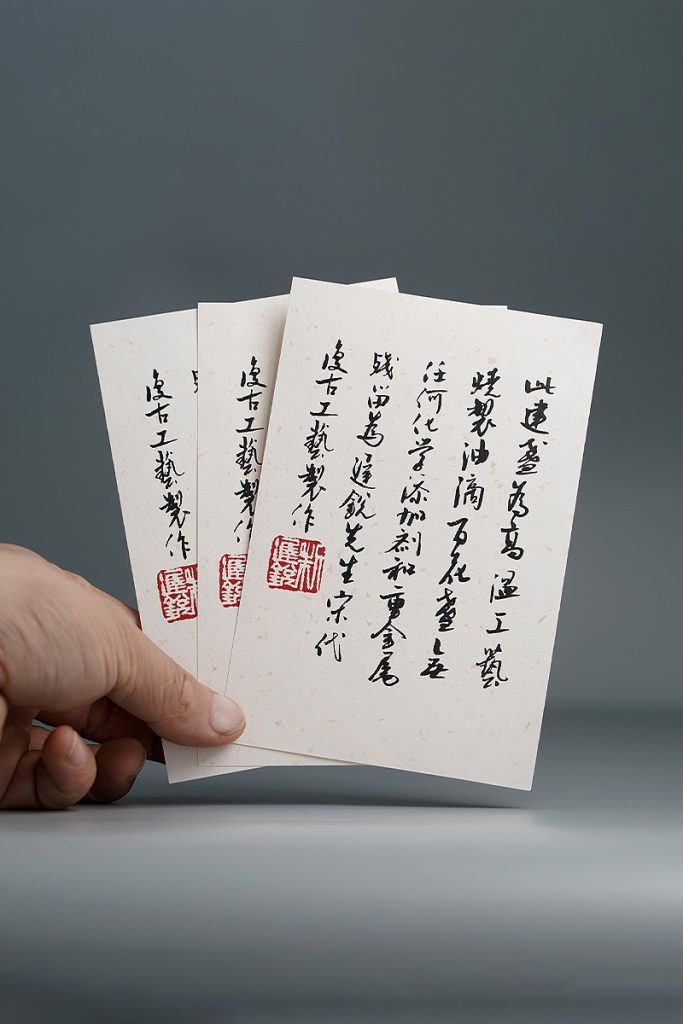 此建盞為高溫工藝
燒製油滴百花盞無
任何化学添加剂和重金属
残留為遲銳先生宋代
復古工藝製作
復古工藝製作
復古工藝製作